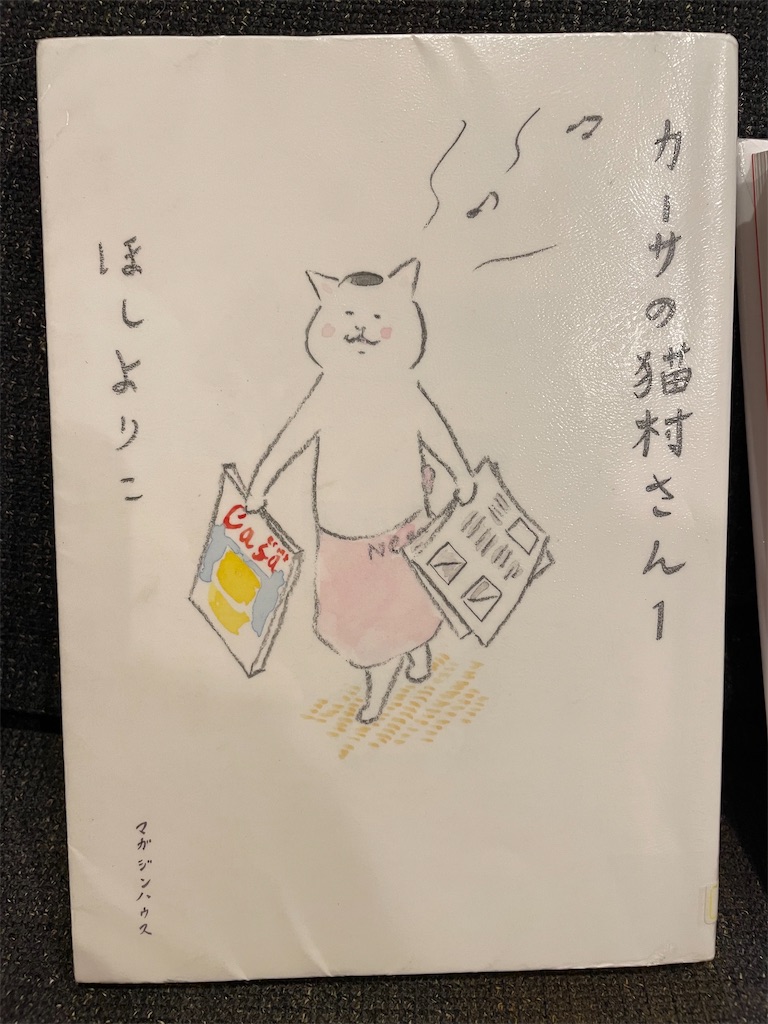 カーサの猫村さん1
ほしよりこ
Casa
マガジンハウス